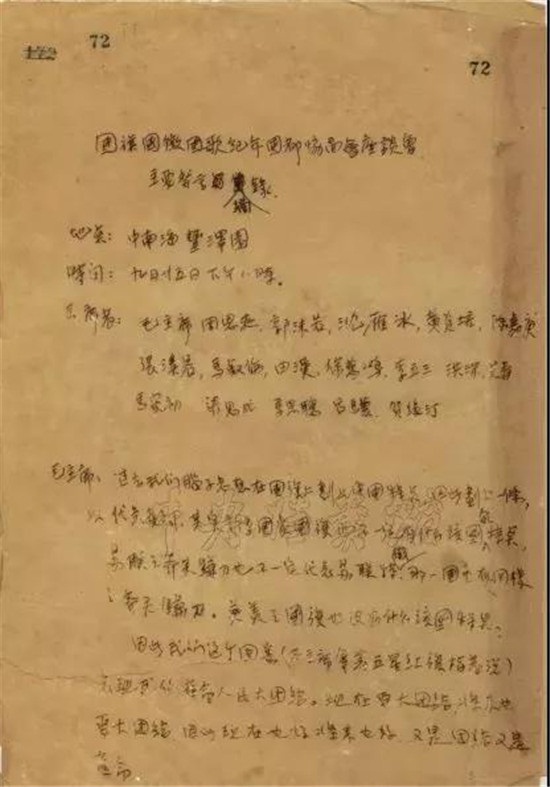 172
72
72
国旗国徽国歌纪年国都协商会座谈会
摘錄
地点：中南海豐澤園
時间：九月廿五日下午八時。
出席者：毛主席 周恩来，郭沫若，沈雁冰，黄炎培，陳嘉庚
張奚若，馬叙倫，田漢，徐悲鴻，李立三 洪深，艾青
馬寅初 梁思成 馬思聰 吕驥 賀绿汀
毛主席：过去我们脑子老想在国旗上划上中国特点，因此划上一条，
以代表黄河，其实許多国家国旗也不一定有什么该国特点。
苏联之斧头鐮刀也不一定代表苏联特徵 那一国也有同樣
之斧头鐮刀。英美之国旗也没有什么該国特点。
因此我们这个图案
表现我们革命人民大团结。现在要大团结，将来也
要大团结 因此现在也好将来也好，又是团结又是
革命